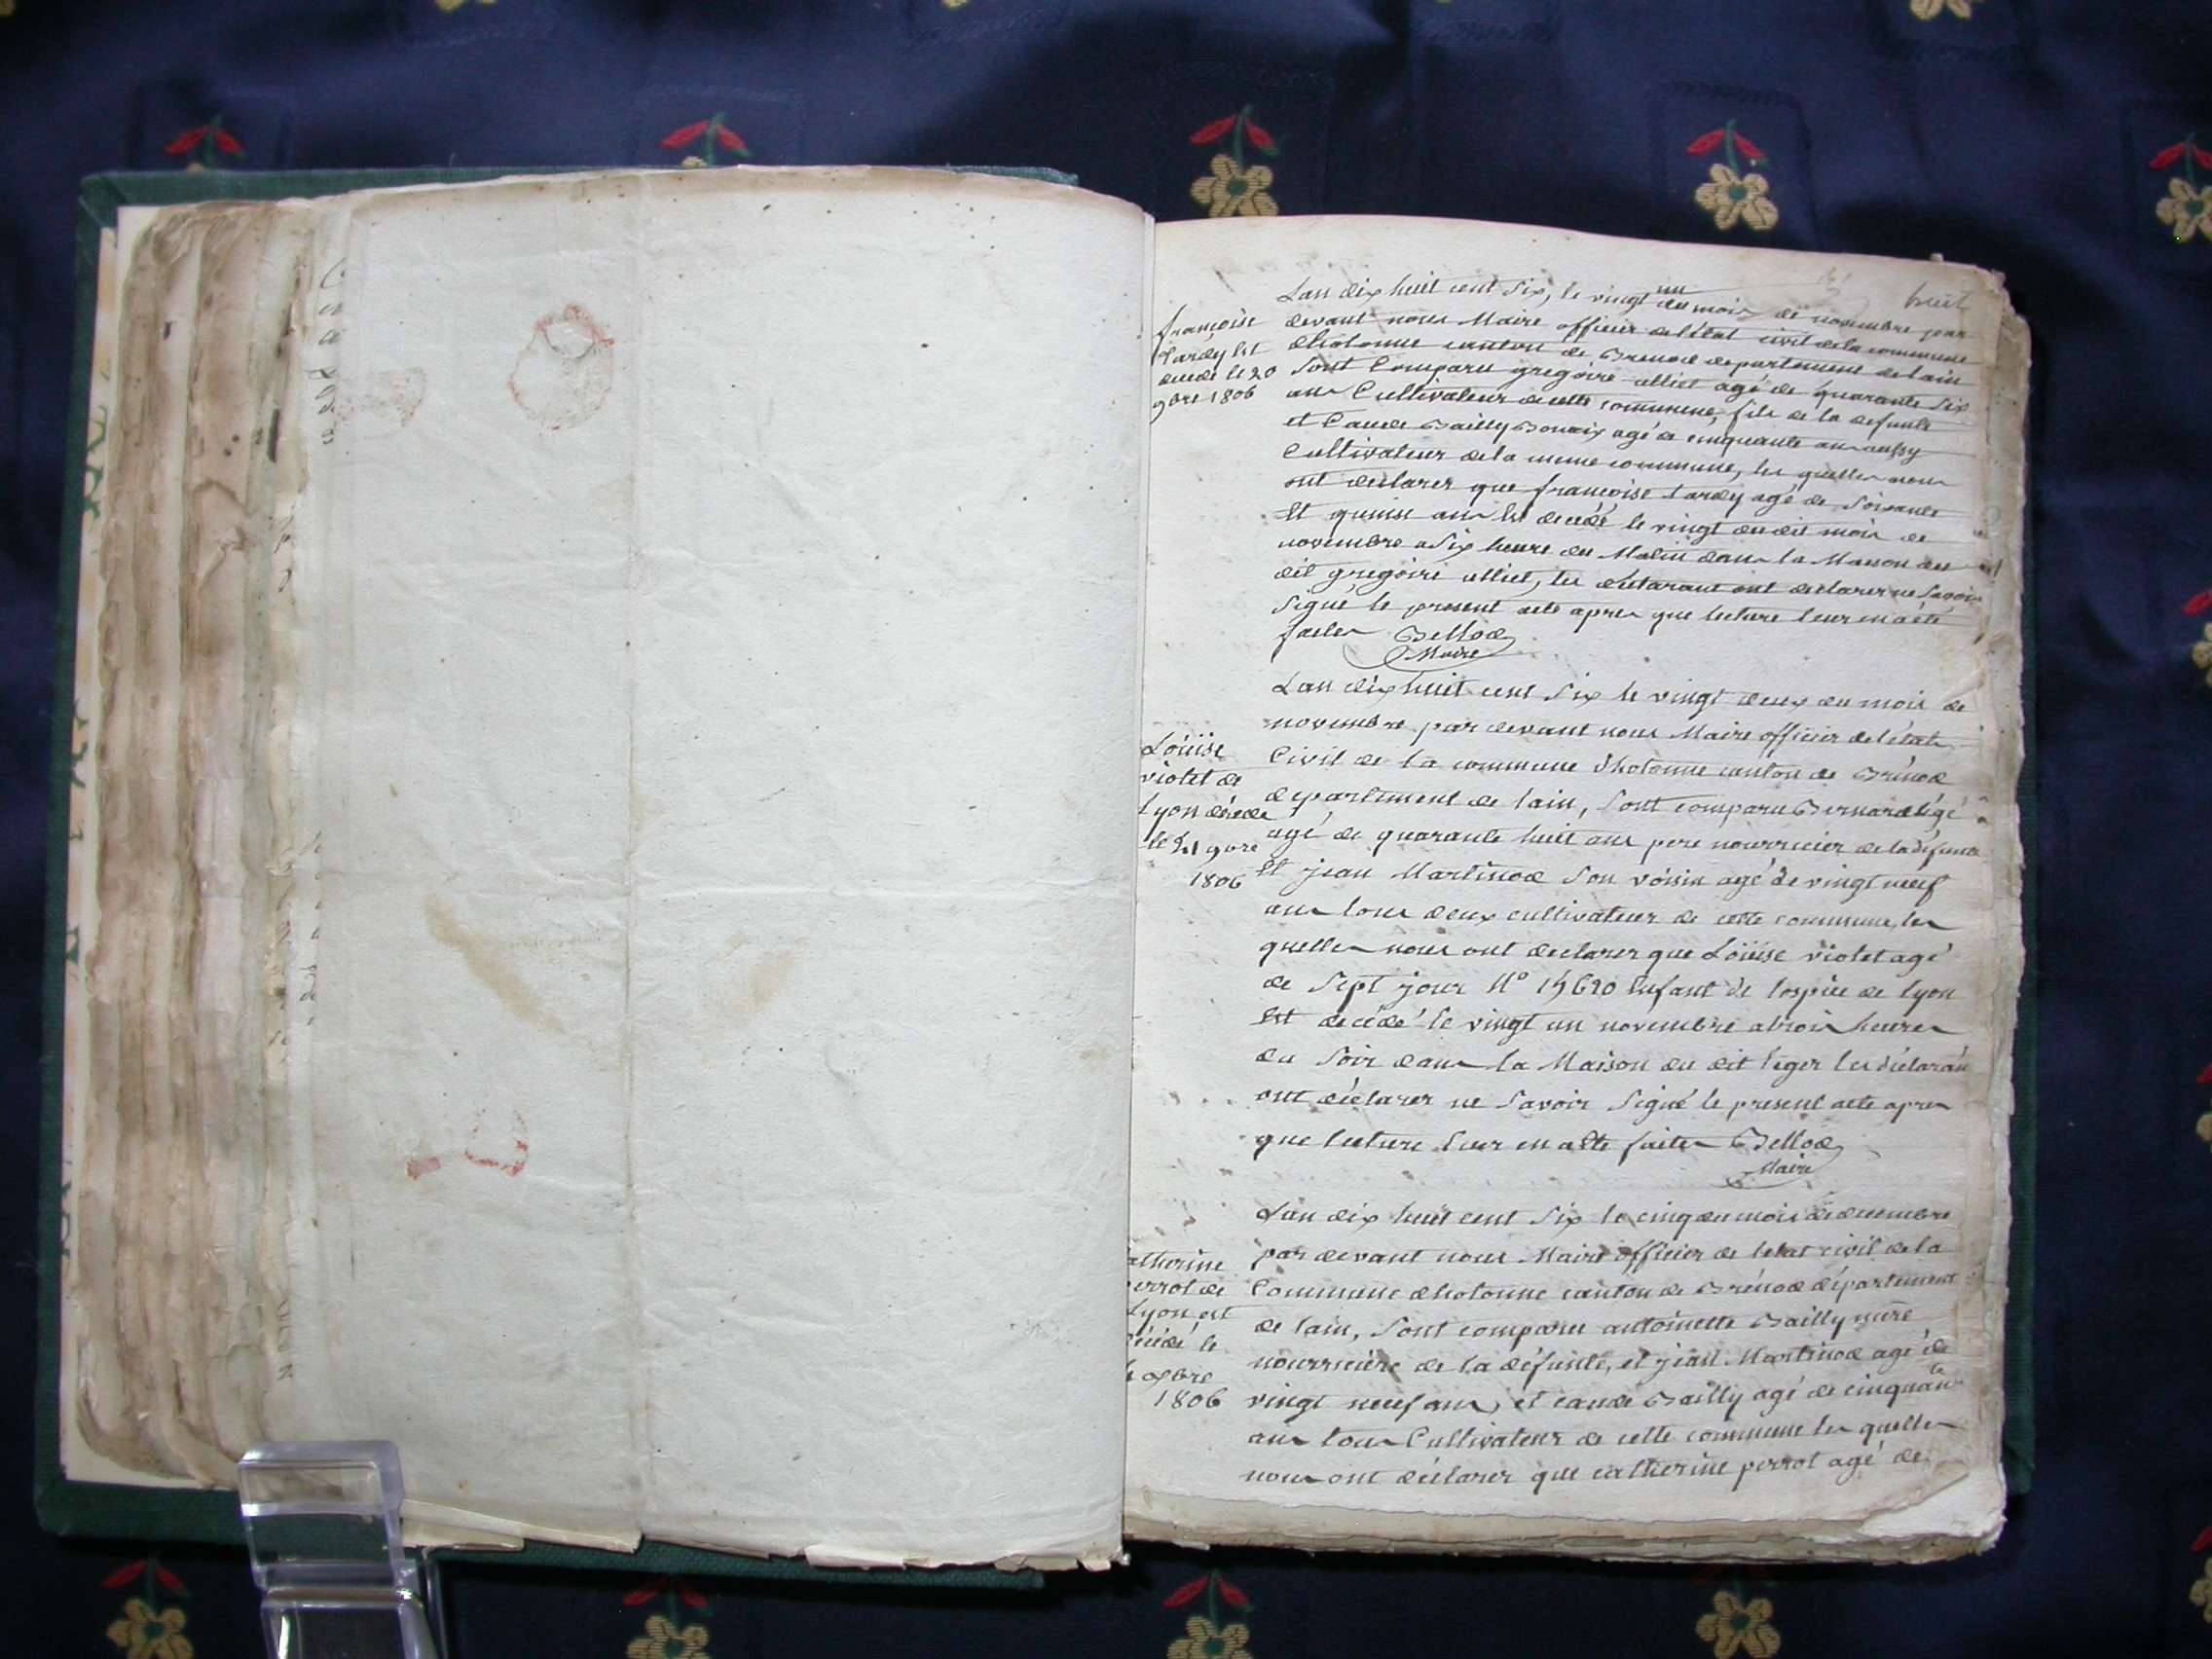 huit
françoise
tardy est
décédé le 20
9bre 1806
Lan dix huit cent six, le vingt un du mois de novembre par
devant nous Maire officier de létat civil de la commune
dhotonne canton de Brenod departement de lain
sont Comparu gregoire alliet agé de quarante six
ans Cultivateur de cette commune, fils de la defunte
et Caude Bailly Bonaix agé de cinquante ans aussy
Cultivateur de la meme commune, les quelles nous
ont declarer que francoise tardy agé de soixante
et quinse ans est decédé le vingt du dit mois de
novembre a six heure du Matin dans la Maison du
dit gregoire alliet, les déclarant ont declarer ne savoir
signé le present acte apres que lecture leur en a été
faites Bellod
Maire
Loüise
violet de
Lyon décédé
le 21 9bre
1806
Lan dix huit cent six le vingt deux du mois de
novembre par devant nous Maire officier de létat
Civil de la commune dhotonne canton de Brénod
departement de lain, sont comparu Bernard légé
agé de quarante huit ans pere nourricier de la défunte
et jean Martinod son voisin agé de vingt neuf
ans tous deux cultivateur de cette commune, les
quelles nous ont declarer que Loüise violet agé
de sept jour N° 15620 Enfant de lospice de Lyon
est decédé le vingt un novembre a trois heures
du soir dans la Maison du dit léger les déclaran
ont déclarer ne savoir signé le present acte apres
que lecture leur en a été faites Bellod
Maire
atherine
errot de
Lyon est
décédé le
xbre
1806
Lan dix huit cent six le cinq du mois de decembre
par devant nous Maire officier de letat civil de la
Commune dhotonne canton de Brénod département
de lain, sont comparu antoinette Bailly mere
nourriciere de la défunte, et jean Martinod agé de
vingt neuf ans, et caude Bailly agé de cinquante
ans tous Cultivateur de cette commune les quelles
nous ont déclarer que catherine perrot agé de